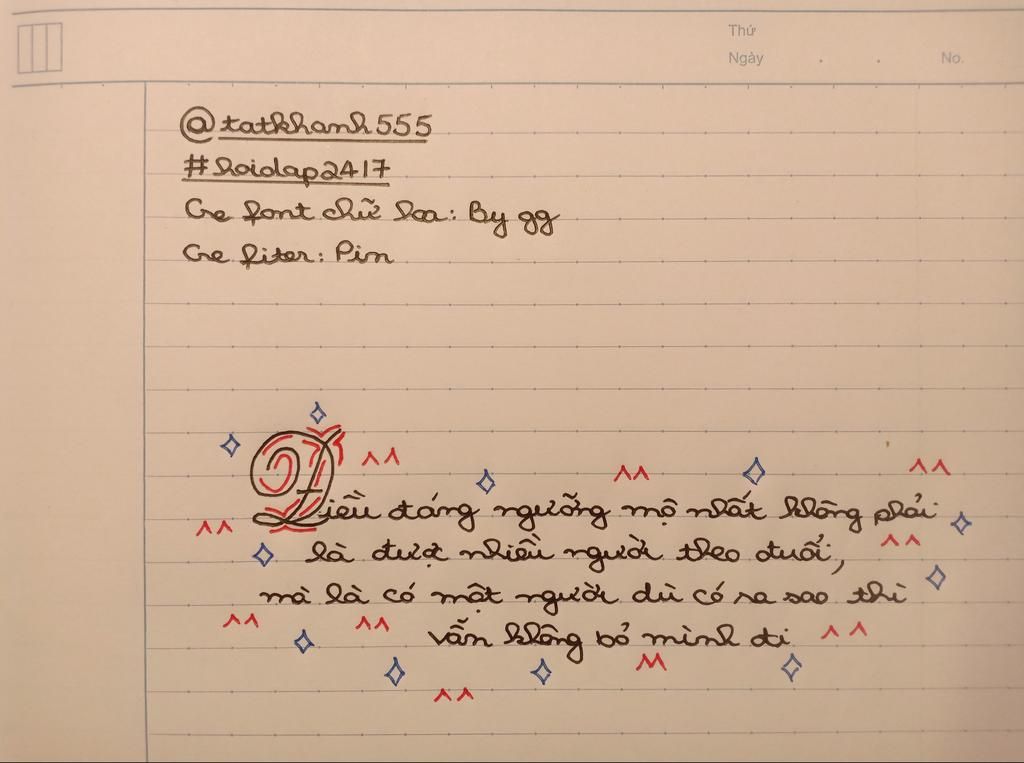 Thứ
Ngày . . No.
@tatkhanh555
#hoidap2417
Cre font chữ hoa: By gg
Cre fiter: Pin
Điều đáng ngưỡng mộ nhất không phải
là được nhiều người theo đuổi,
mà là có một người dù có ra sao thì
vẫn không bỏ mình đi